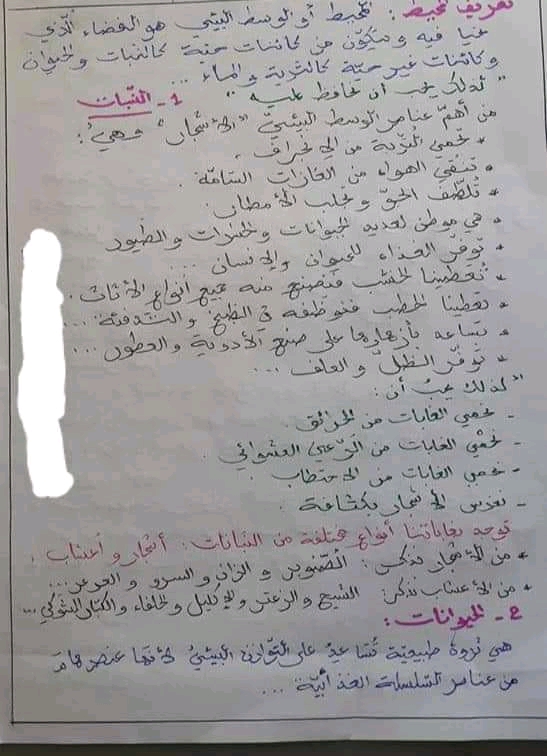 تعريف المحيط : المحيط أو الوسط البيئي هو الفضاء الّذي
نحيا فيه و يتكوّن من كائنات حيّة كالنبات و الحيوان
و كائنات غير حيّة كالتربة و الماء ...
" لذلك يجب أن نحافظ عليه "
1 - النّبات
من أهمّ عناصر الوسط البيئيّ " الأشجار " و هيَ :
* تحمي التُّربة من الانجراف .
* تنقّي الهواء من الغازات السّامّة .
* تُلطّف الجوّ و تجلب الأمطار .
* هي موطن لعديد الحيوانات و الحشرات و الطّيور
* توفّر الغذاء للحيوان و الإنسان ...
* تُعطينا الخشب فنصنع منه جميع أنواع الأثاث .
* تعطينا الحطب فنوظّفه في الطبخ و التدفئة ...
* تساعد بأزهارها على صنع الأدوية و العطور ...
* توفّر الظلّ و العلف ...
" لذلك يجبُ أن :
- نحمي الغابات من الحرائق .
- نحْمي الغابات من الرّعي العشوائي .
- نحمي الغابات من الاحتطاب .
- نغرس الأشجار بكثافة .
توجد بغاباتنا أنواع مختلفة من النباتات : أشجار و أعشاب .
* من الأشجار نذكر : الصّنوبر و الزّان و السرو و العرعر ...
* من الأعشاب نذكر : الشيح و الزعتر و الإكليل و الحلفاء و الشوكي ...
2 - الحيوانات :
هي ثروة طبيعيّة تُساعدُ على التّوازن البيئيّ لأنّها عنصر هامّ
من عناصر السّلسلة الغذائيّة ...